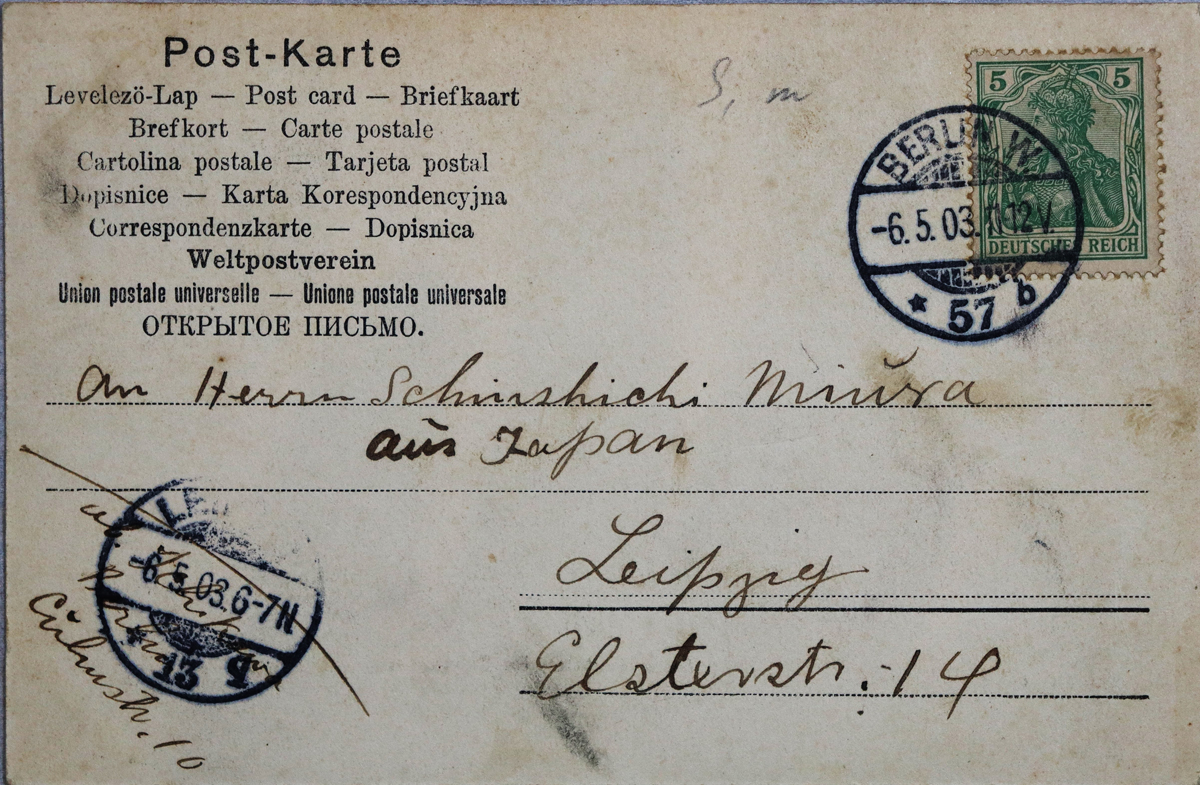 Post-Karte
Levelezö-Lap — Post card — Briefkaart
Brefkort — Carte postale
Cartolina postale — Tarjeta postal
Dopisnice — Karta Korespondencyjna
Correspondenzkarte — Dopisnica
Weltpostverein
Union postale universelle — Unione postale universale
ОТКРЫТОЕ ПИСЬМО.
S, m
5 5
DEUTSCHES REICH
BERLIN W.
-6.5.03.11-12V.
* 57 b
An Herrn Schinshichi Miŭra
aus Japan
Leipzig
Elsterstr. 14
-6.5.03.6-7N.
* 13 B
10